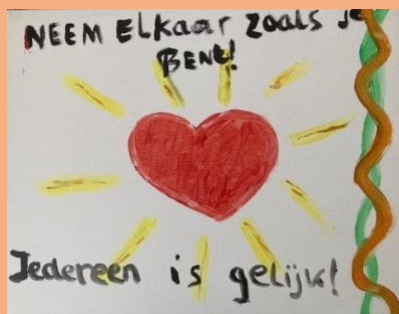 NEEM ELkaar zoals je
BENt!
Jedereen is gelijk!